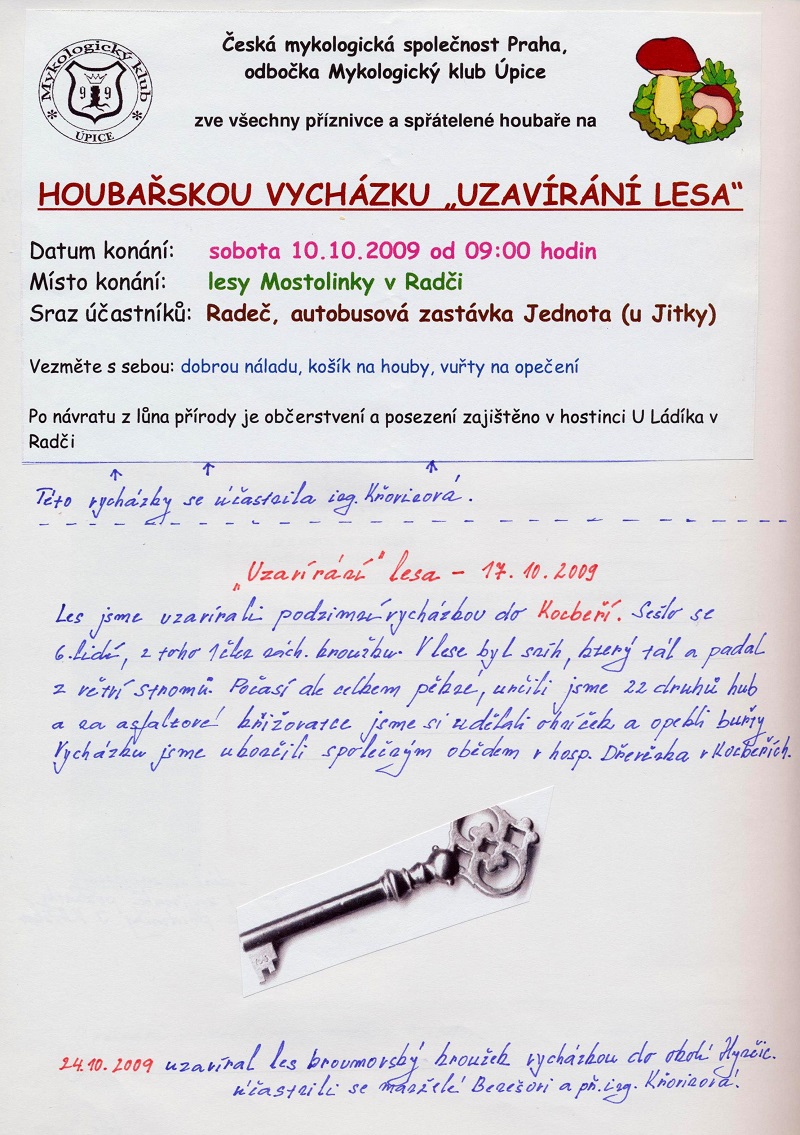 Mykologický klub
9 9
ÚPICE
Česká mykologická společnost Praha,
odbočka Mykologický klub Úpice
zve všechny příznivce a spřátelené houbaře na
HOUBAŘSKOU VYCHÁZKU „UZAVÍRÁNÍ LESA“
Datum konání: sobota 10.10.2009 od 09:00 hodin
Místo konání: lesy Mostolinky v Radči
Sraz účastníků: Radeč, autobusová zastávka Jednota (u Jitky)
Vezměte s sebou: dobrou náladu, košík na houby, vuřty na opečení
Po návratu z lůna přírody je občerstvení a posezení zajištěno v hostinci U Ládíka v
Radči
Této vycházky se účastnila ing. Kňovizová.
„Uzavírání" lesa – 17.10.2009
Les jsme uzavírali podzimní vycházkou do Kocbeří. Sešlo se
6.lidí, z toho 1 člen nách. kroužku. V lese byl sníh, který tál a padal
z větví stromů. Počasí ale celkem pěkné, určili jsme 22 druhů hub
a na asfaltové křižovatce jsme si udělali ohníček a opekli buřty
Vycházku jsme ukončili společným obědem v hosp. Dřevěnka v Kocbeřích.
24.10.2009 uzavíral les broumovský kroužek vycházkou do okolí Hynčic.
účastnili se manželé Benešovi a př. ing. Kňovizová.